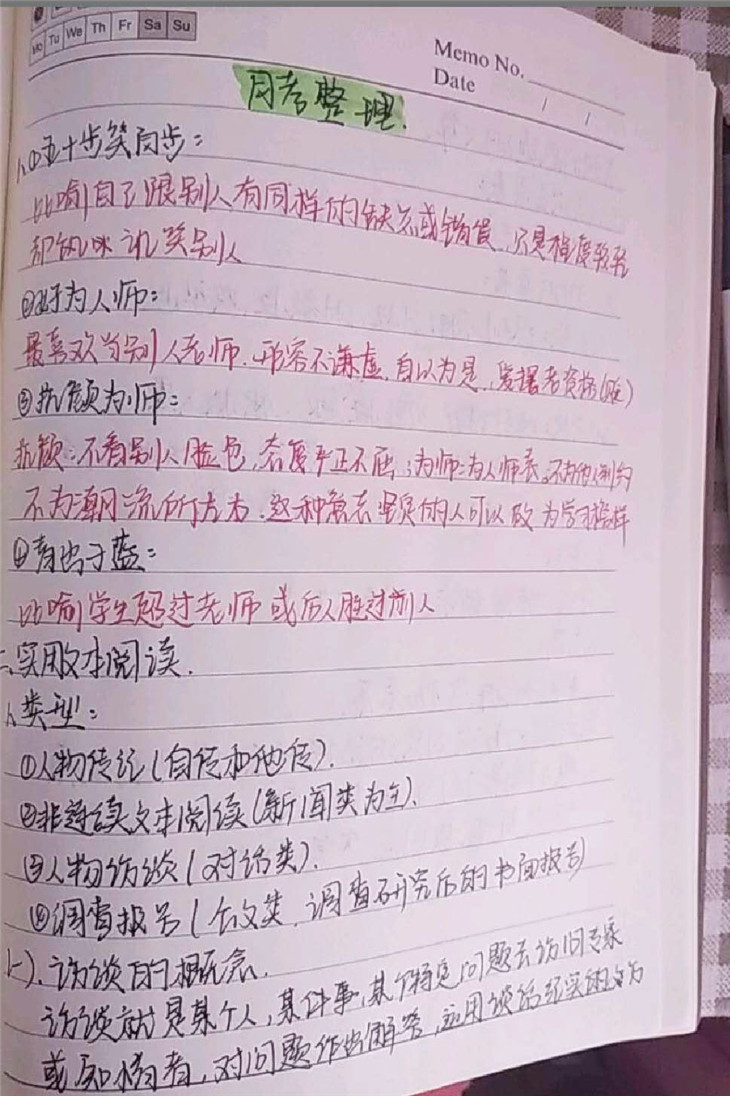 Mo Tu We Th Fr Sa Su
Memo No.
Date / /
月考整理.
1、①五十步笑百步：
比喻自己跟别人有同样的缺点或错误，只是程度较轻
却讥笑别人
②好为人师：
最喜欢当别人老师.形容不谦虚,自以为是,爱摆老资格(贬)
③抗颜为师：
抗颜：不看别人脸色,态度严正不屈；为师：为人师表,不为
不为潮流所左右.这种意志坚定的人可以成为学习榜样
④青出于蓝：
比喻学生超过老师或后人胜过前人
二、实用文本阅读.
1、类型：
①人物传记(自传和他传).
②非连续文本阅读(新闻类为主).
③人物访谈(对话类).
④调查报告(公文类,调查研究后的书面报告)
(一).访谈的概念.
访谈就是某个人,某件事,某个特定问题去访问专家
或知情者,对问题作出解答,运用谈话纪实的